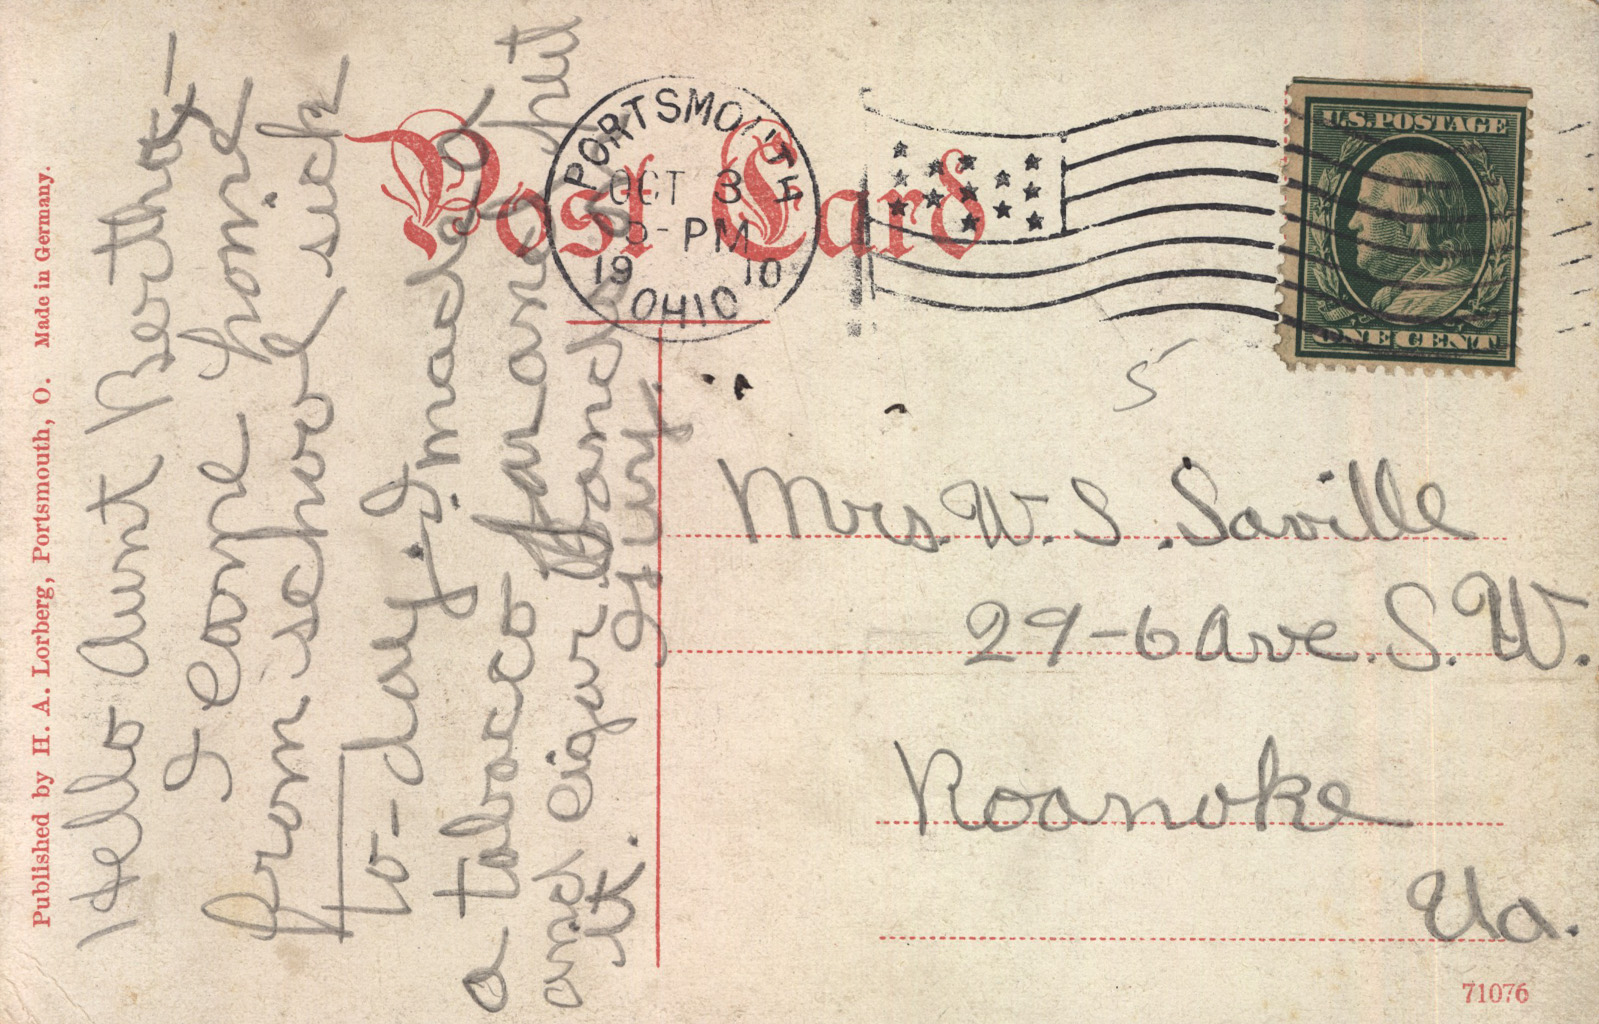 Published by H. A. Lorberg, Portsmouth, O. Made in Germany.
Hello Aunt Bertha-
I came home
from school sick
to-day. I made a
a tabacco jar and put
and cigar bands on
it.
Post Card
PORTSMOUTH
OCT 3
5-PM
1910
OHIO
U.S. POSTAGE
ONE CENT
5
Mrs. W. S. Saville
29-6 Ave. S. W.
Roanoke
Va.
71076